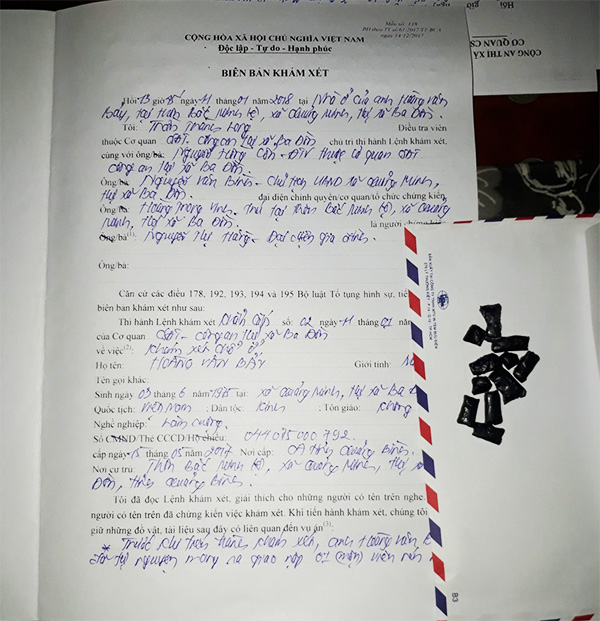 Mẫu số: 118
BH theo TT số 61/2017/TT-BCA
ngày 14/12/2017
CỘNG HÒA XÃ HỘI CHỦ NGHĨA VIỆT NAM
Độc lập - Tự do - Hạnh phúc
BIÊN BẢN KHÁM XÉT
Hồi 13 giờ 15 ngày 11 tháng 01 năm 2018 tại Nhà ở của anh Hoàng Văn
Bảy, tại thôn Bắc Minh Lệ, xã Quảng Minh, thị xã Ba Đồn.
Tôi: Trần Thanh Long Điều tra viên
thuộc Cơ quan CSĐT - Công an thị xã Ba Đồn chủ trì thi hành Lệnh khám xét,
cùng với ông/bà: Nguyễn Hùng - ĐTV thuộc cơ quan CSĐT
Công an thị xã Ba Đồn.
Ông/bà: Nguyễn Văn - Chủ tịch UBND xã Quảng Minh,
thị xã Ba Đồn. đại diện chính quyền/cơ quan/tổ chức chứng kiến
Ông/bà: Hoàng Trọng Vinh. Trú tại thôn Bắc Minh Lệ, xã Quảng
Minh, thị xã Ba Đồn. là người
Ông/bà(1): Nguyễn Thị Hằng - Đại diện gia đình.
Ông/bà:
Căn cứ các điều 178, 192, 193, 194 và 195 Bộ luật Tố tụng hình sự, tiến
biên bản khám xét như sau:
Thi hành Lệnh khám xét khẩn cấp số: 02 ngày 11 tháng 01 năm
của Cơ quan CSĐT - Công an thị xã Ba Đồn
về việc(2): Khám xét chỗ ở
Họ tên: HOÀNG VĂN BẢY Giới tính:
Tên gọi khác:
Sinh ngày 03 tháng 6 năm 1975 tại: xã Quảng Minh, thị xã Ba Đ
Quốc tịch: Việt Nam ; Dân tộc: Kinh ; Tôn giáo: Không
Nghề nghiệp: Làm ruộng.
Số CMND/Thẻ CCCD/Hộ chiếu: 044075000792.
cấp ngày 15 tháng 05 năm 2017 Nơi cấp: CA tỉnh Quảng Bình.
Nơi cư trú: Thôn Bắc Minh Lệ, xã Quảng Minh, thị x
Đồn, tỉnh Quảng Bình.
Tôi đã đọc Lệnh khám xét, giải thích cho những người có tên trên nghe
người có tên trên đã chứng kiến việc khám xét. Khi tiến hành khám xét, chúng tôi
giữ những đồ vật, tài liệu sau đây có liên quan đến vụ án(3):
Trước khi tiến hành khám xét, anh Hoàng Văn B
đã tự nguyện mang ra giao nộp 01 (một) viên nén
Hồi giờ
CÔNG AN THỊ XÃ
CƠ QUAN CS
B3